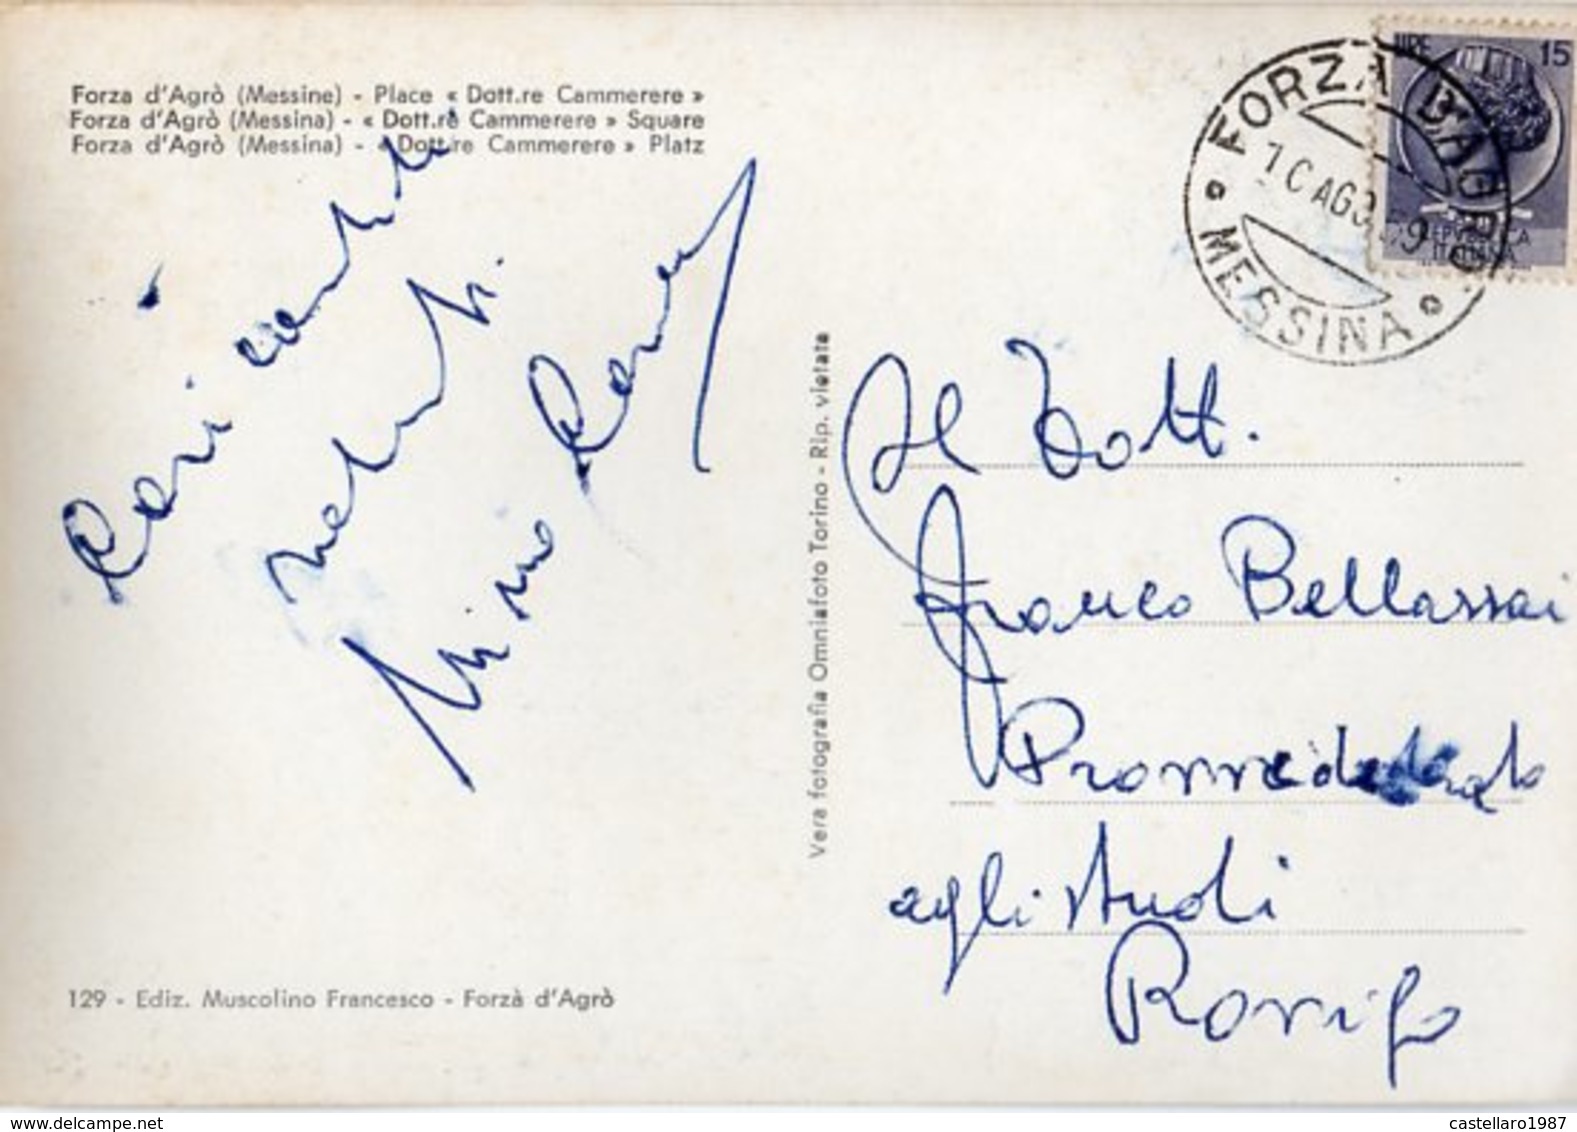 Forza d'Agrò (Messine) - Place « Dott.re Cammerere »
Forza d'Agrò (Messina) - « Dott.re Cammerere » Square
Forza d'Agrò (Messina) - « Dott.re Cammerere » Platz
LIRE 15
REPVBBLICA
ITALIANA
FORZA D'AGRO
MESSINA
Cari
Nino
Vera fotografia Omniafoto Torino - Rip. vietata
Al Dott.
Franco Bellassai
Provveditorato
agli studi
Rovigo
129 - Ediz. Muscolino Francesco - Forzà d'Agrò
castellaro1987